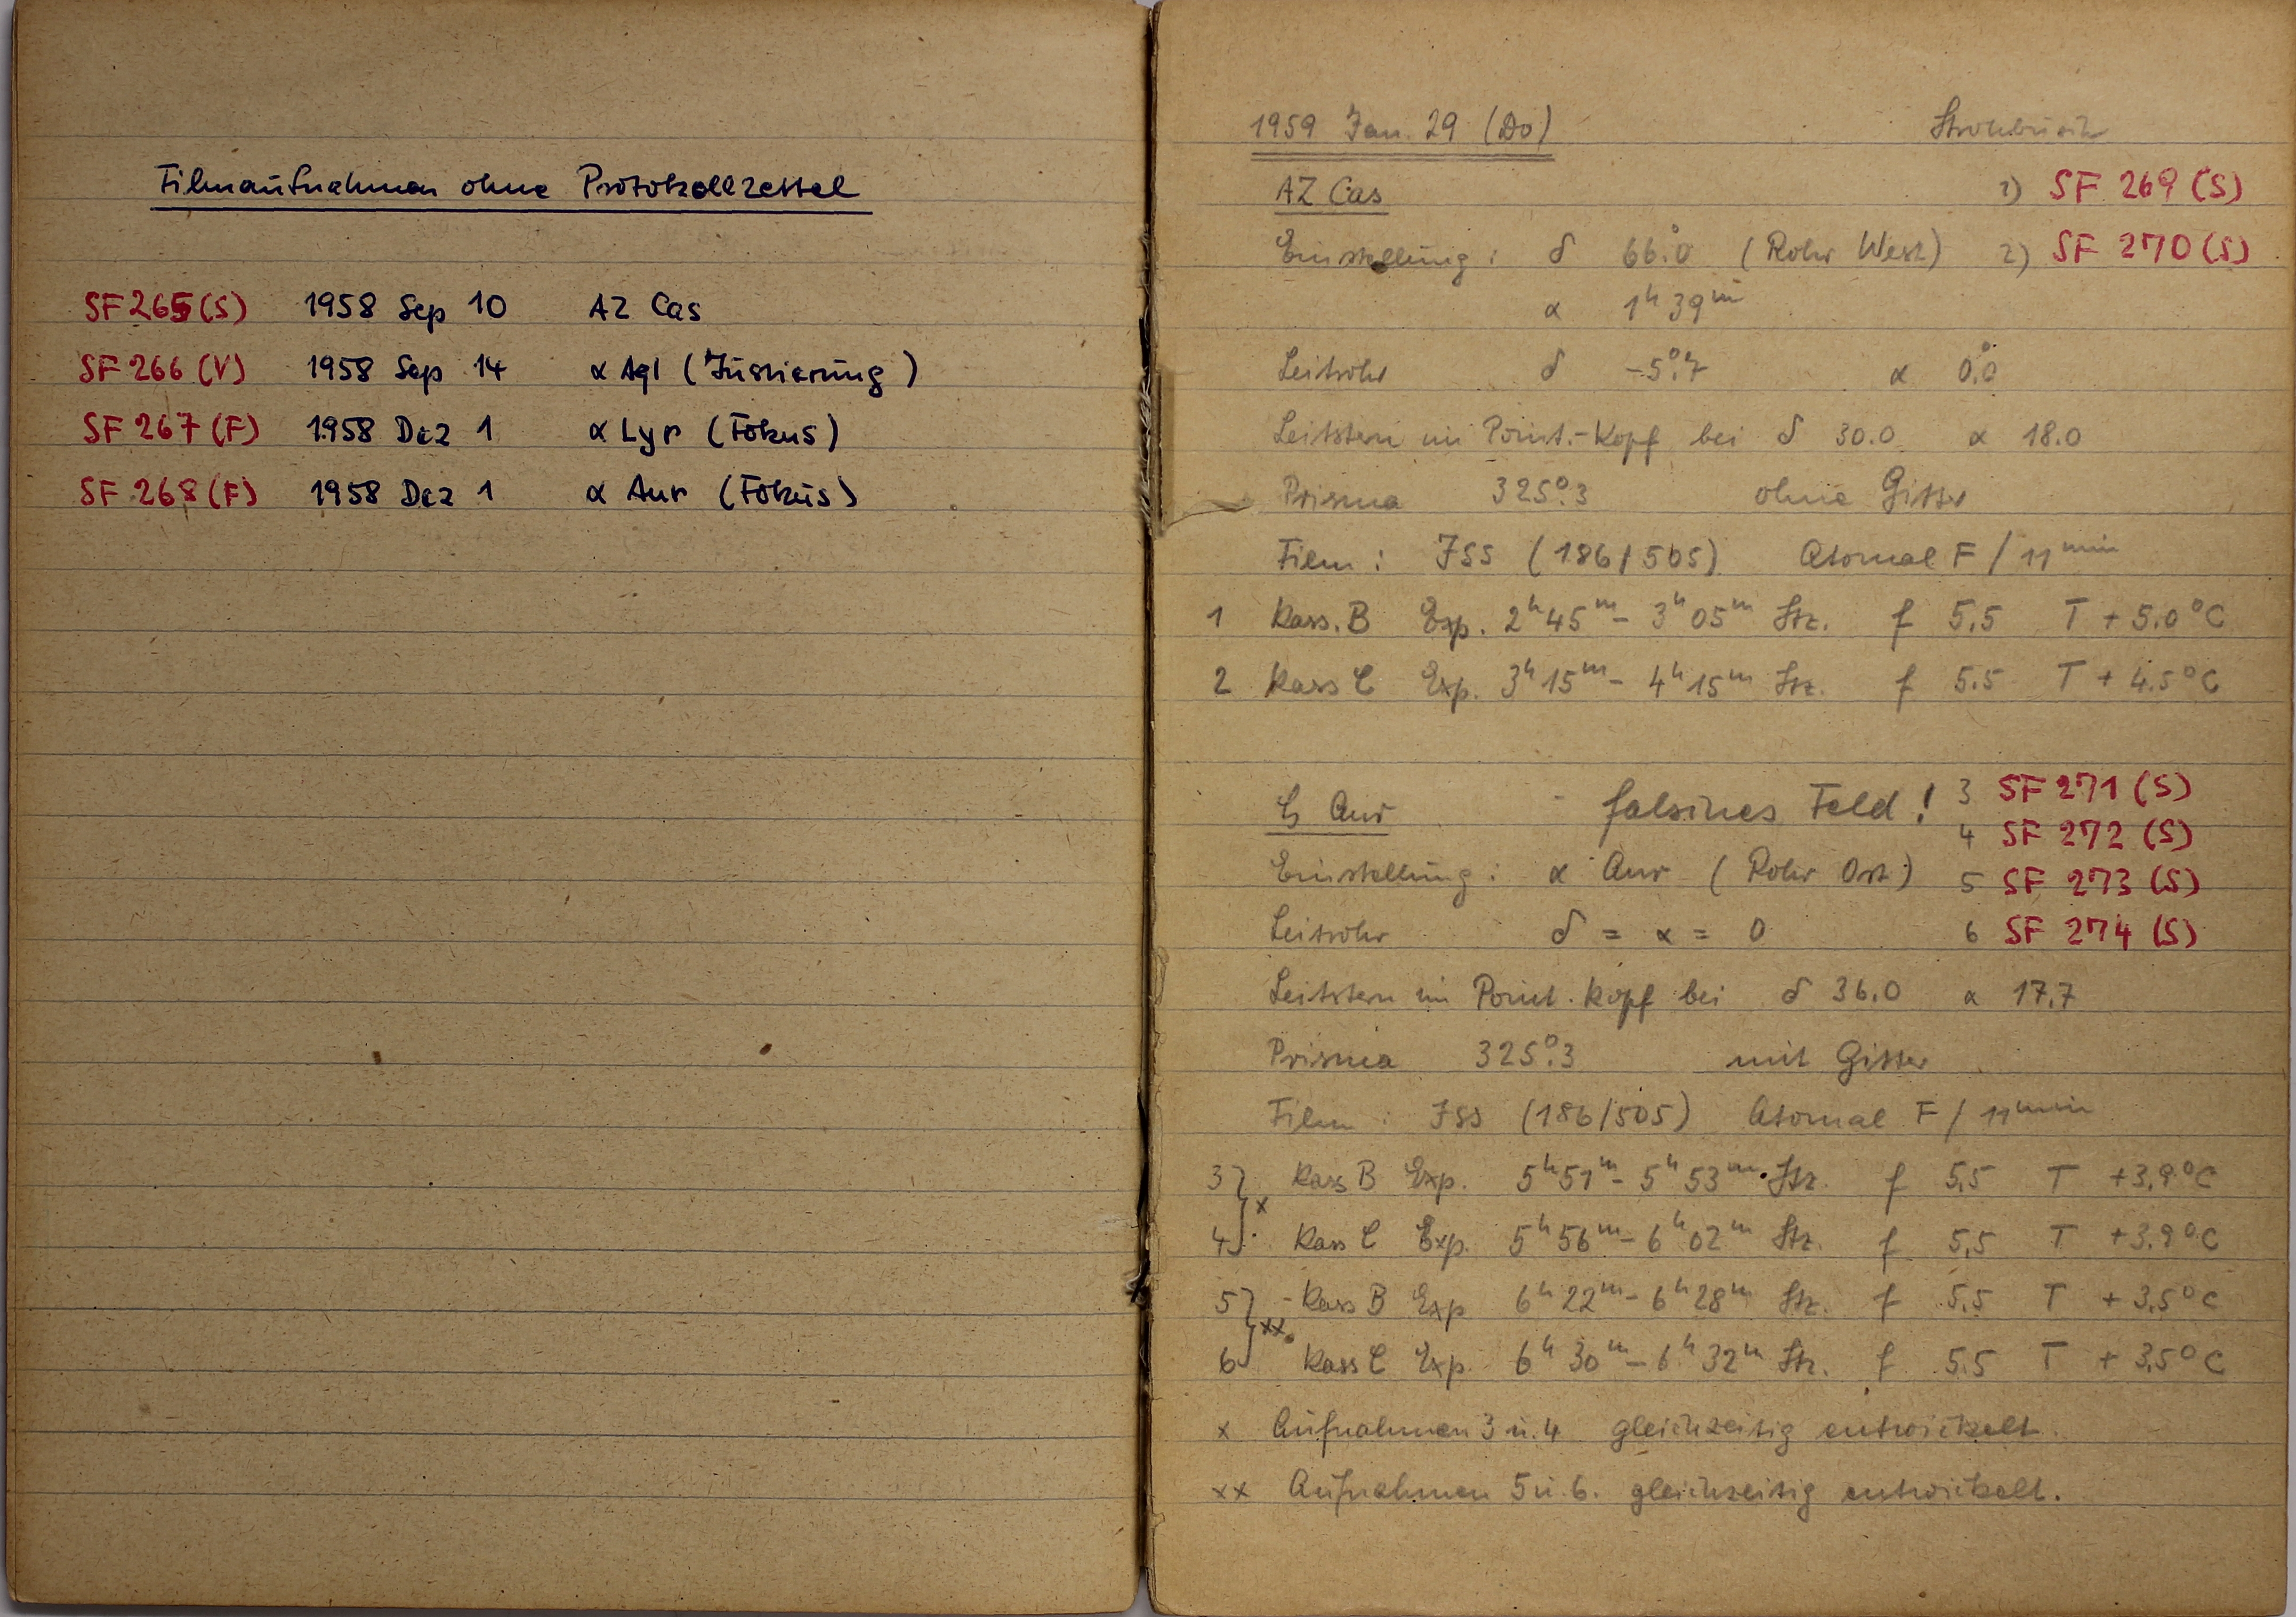 Filmaufnahmen ohne Protokollzettel
SF 265 (S) 1958 Sep 10 AZ Cas
SF 266 (V) 1958 Sep 14 α Aql (Justierung)
SF 267 (F) 1958 Dez 1 α Lyr (Fokus)
SF 268 (F) 1958 Dez 1 α Aur (Fokus)
1959 Jan. 29 (Do)
AZ Cas 1) SF 269 (S)
Einstellung: δ 66°.0 (Rohr West) 2) SF 270 (S)
α 1ʰ 39ᵐ
Leitrohr δ -5°.7 α 0°.0
Leitstern im Point.-Kopf bei δ 30.0 α 18.0
Prisma 325°.3 ohne Gitter
Film: ISS (186/505) Atomal F / 11ᵐⁱⁿ
1 Kass. B Exp. 2ʰ45ᵐ - 3ʰ05ᵐ Stz. f 5.5 T + 5.0°C
2 Kass C Exp. 3ʰ15ᵐ - 4ʰ15ᵐ Stz. f 5.5 T + 4.5°C
ζ Aur falsches Feld! 3 SF 271 (S)
4 SF 272 (S)
Einstellung: α Aur (Rohr Ost) 5 SF 273 (S)
Leitrohr δ = α = 0 6 SF 274 (S)
Leitstern im Point. Kopf bei δ 36.0 α 17.7
Prisma 325°.3 mit Gitter
Film: ISS (186/505) Atomal F / 11ᵐⁱⁿ
3 } x Kass B Exp. 5ʰ51ᵐ - 5ʰ53ᵐ Stz. f 5.5 T +3.9°C
4 Kass C Exp. 5ʰ56ᵐ - 6ʰ02ᵐ Stz. f 5.5 T +3.9°C
5 } xx Kass B Exp 6ʰ22ᵐ - 6ʰ28ᵐ Stz. f 5.5 T + 3.5°C
6 Kass C Exp. 6ʰ30ᵐ - 6ʰ32ᵐ Stz. f 5.5 T + 3.5°C
x Aufnahmen 3 u. 4 gleichzeitig entwickelt.
xx Aufnahmen 5 u. 6. gleichzeitig entwickelt.